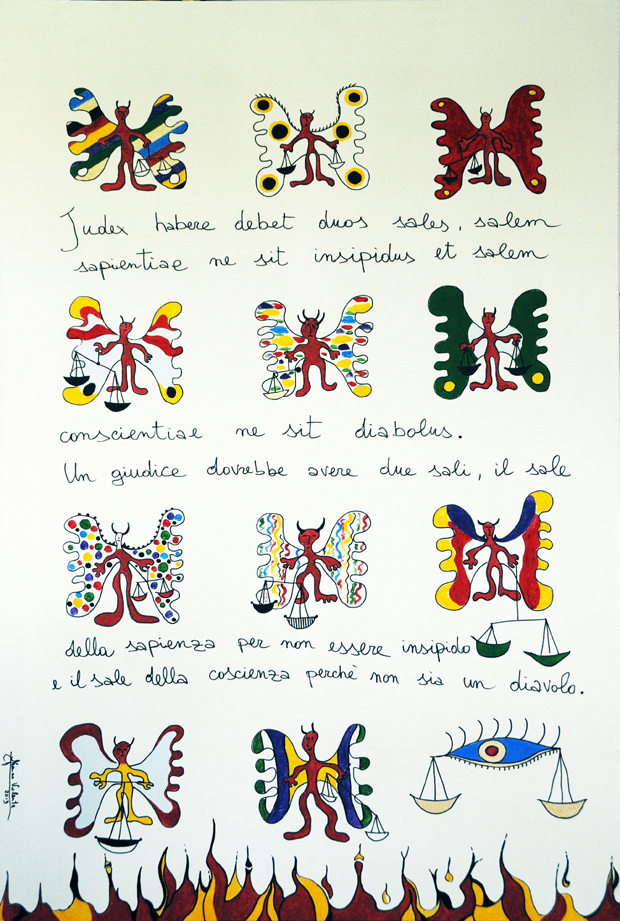 Judex habere debet duos sales, salem
sapientiae ne sit insipidus et salem
conscientiae ne sit diabolus.
Un giudice dovrebbe avere due sali, il sale
della sapienza per non essere insipido
e il sale della coscienza perchè non sia un diavolo.
2013